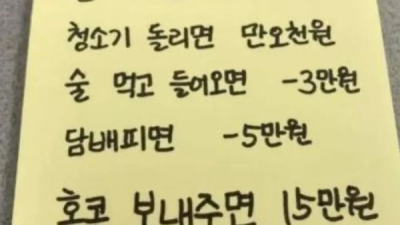 청소기 돌리면 만오천원
술 먹고 들어오면 -3만원
담배피면 -5만원
호코 보내주면 15만원